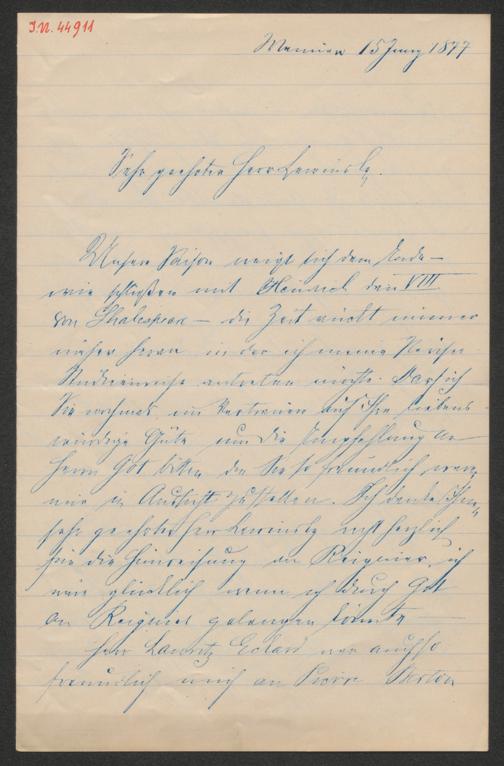 J.N. 44911
15 Juny 1877
Sehr geehrter Herr Lewinsky.
Unsere Saison neigt sich dem Ende –
wir schließen mit Heinrich den VIII
von Shakespeare – die Zeit rückt immer
näher heran in der ich meine Pariser
Studienreise antreten möchte. Darf ich
Sie nochmals im Vertrauen auf Ihre liebens
würdige Güte um die Empfehlung an
Herrn Got bitten die Sie so freundlich waren
mir in Aussicht zu stellen. Ich danke Ihnen
sehr geehrter Herr Lewinsky recht herzlich
für die Hinweisung an Reignier, ich
wäre glücklich wenn ich durch Got
an Reignier gelangen könnte
Herr war auch so
freundlich mich an